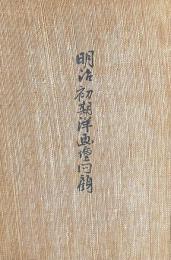 明治初期洋画壇回顧